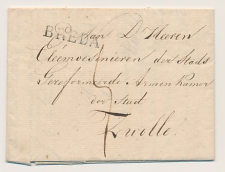 aan D'Heeren
BREDA
Aleemoesenieren der Stads
Gereformeerde Armen Kamer
der Stad
Zwolle.